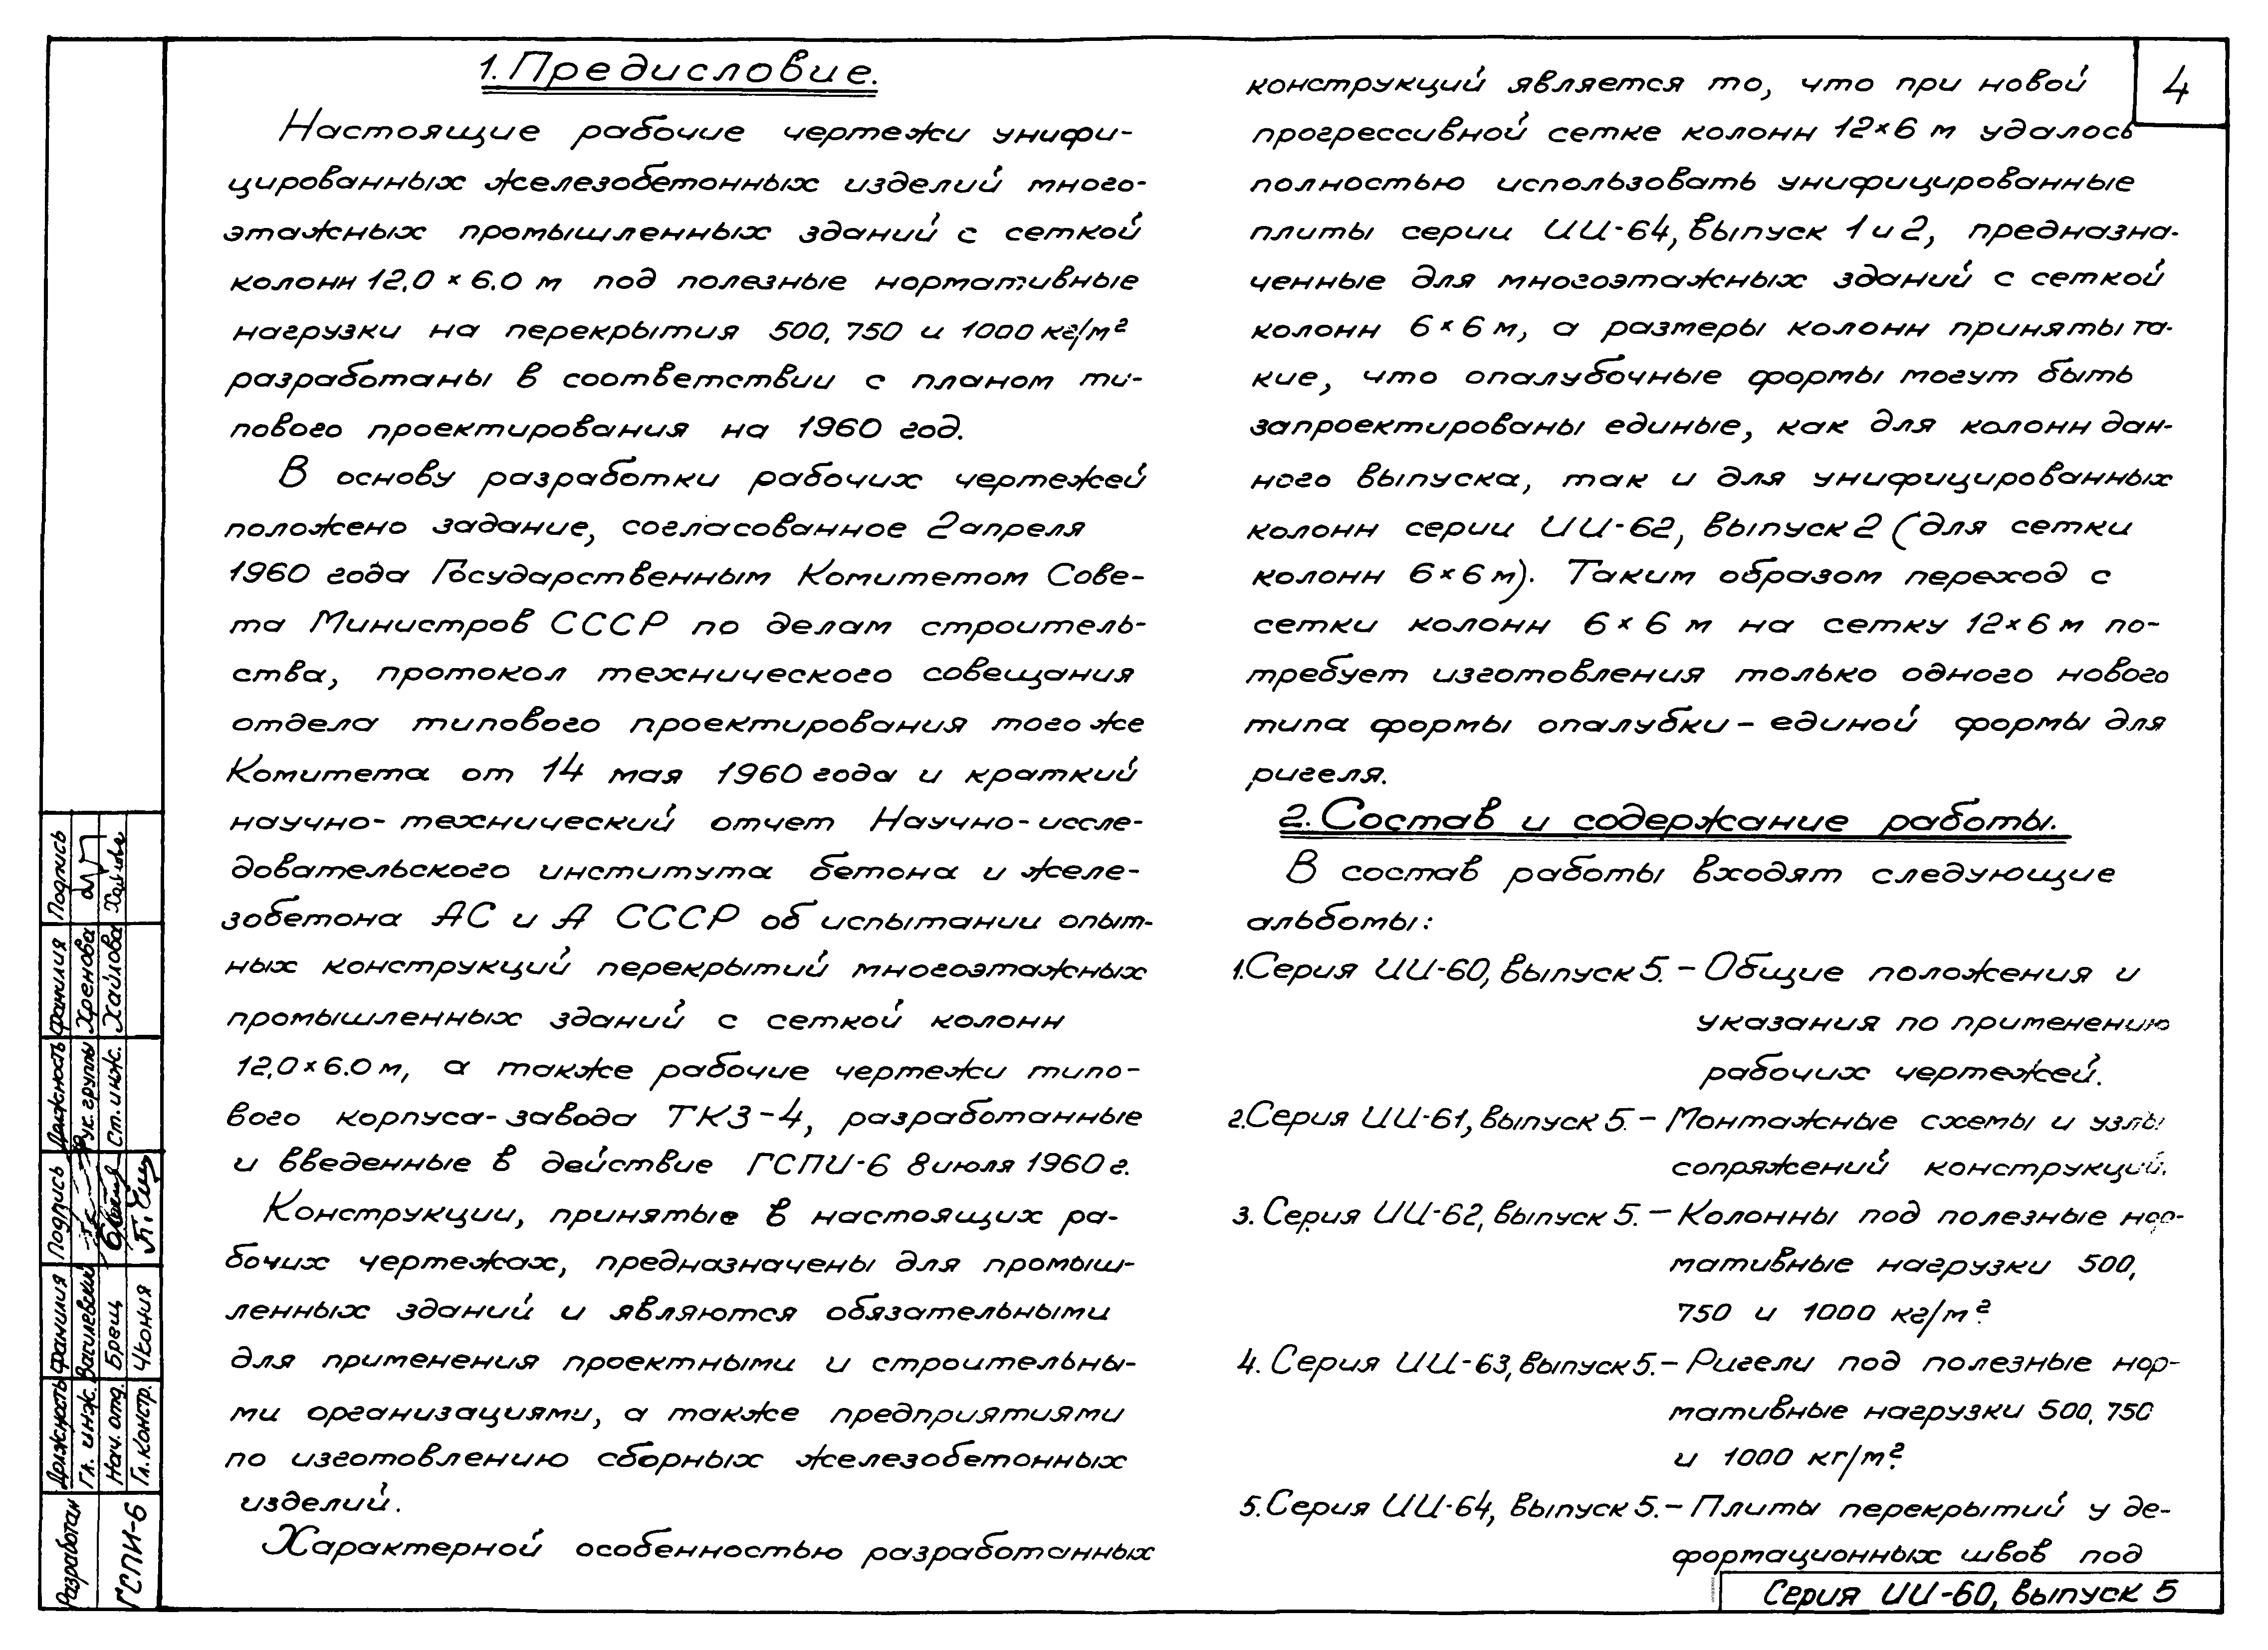 1. Предисловие.
Настоящие рабочие чертежи унифи-
цированных железобетонных изделий много-
этажных промышленных зданий с сеткой
колонн 12.0 × 6.0 м под полезные нормативные
нагрузки на перекрытия 500, 750 и 1000 кг/м²
разработаны в соответствии с планом ти-
пового проектирования на 1960 год.
В основу разработки рабочих чертежей
положено задание, согласованное 2 апреля
1960 года Государственным Комитетом Сове-
та Министров СССР по делам строитель-
ства, протокол технического совещания
отдела типового проектирования того же
Комитета от 14 мая 1960 года и краткий
научно-технический отчет Научно-иссле-
довательского института бетона и желе-
зобетона АС и А СССР об испытании опыт-
ных конструкций перекрытий многоэтажных
промышленных зданий с сеткой колонн
12.0 × 6.0 м, а также рабочие чертежи типо-
вого корпуса-завода ТКЗ-4, разработанные
и введенные в действие ГСПИ-6 8 июля 1960 г.
Конструкции, принятые в настоящих ра-
бочих чертежах, предназначены для промыш-
ленных зданий и являются обязательными
для применения проектными и строительны-
ми организациями, а также предприятиями
по изготовлению сборных железобетонных
изделий.
Характерной особенностью разработанных
4
конструкций является то, что при новой
прогрессивной сетке колонн 12×6 м удалось
полностью использовать унифицированные
плиты серии ИИ-64, выпуск 1 и 2, предназна-
ченные для многоэтажных зданий с сеткой
колонн 6×6 м, а размеры колонн приняты та-
кие, что опалубочные формы могут быть
запроектированы единые, как для колонн дан-
ного выпуска, так и для унифицированных
колонн серии ИИ-62, выпуск 2 (для сетки
колонн 6×6 м). Таким образом переход с
сетки колонн 6×6 м на сетку 12×6 м по-
требует изготовления только одного нового
типа формы опалубки - единой формы для
ригеля.
2. Состав и содержание работы.
В состав работы входят следующие
альбомы:
1. Серия ИИ-60, выпуск 5. - Общие положения и
указания по применению
рабочих чертежей.
2. Серия ИИ-61, выпуск 5. - Монтажные схемы и узлы
сопряжений конструкций.
3. Серия ИИ-62, выпуск 5. - Колонны под полезные нор-
мативные нагрузки 500,
750 и 1000 кг/м².
4. Серия ИИ-63, выпуск 5. - Ригели под полезные нор-
мативные нагрузки 500, 750
и 1000 кг/м².
5. Серия ИИ-64, выпуск 5. - Плиты перекрытий у де-
формационных швов под
Серия ИИ-60, выпуск 5
Разработан
ГСПИ-6
Должность Фамилия Подпись Должность Фамилия Подпись
Гл. инж. Василевский Рук. группы Хренова
Нач. отд. Брещ Ст. инж. Хайлова
Гл. констр. Чкония